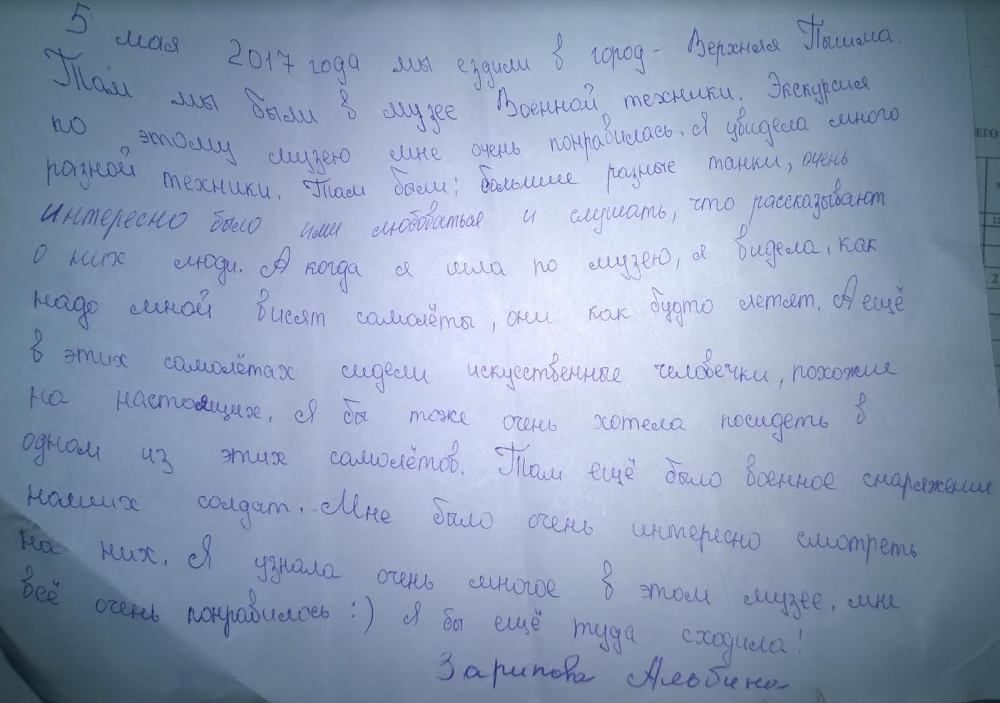 5 мая 2017 года мы ездили в город - Верхняя Пышма.
Там мы были в музее Военной техники. Экскурсия
по этому музею мне очень понравилась. Я увидела много
разной техники. Там были: большие разные танки, очень
интересно было ими любоваться и слушать, что рассказывают
о них люди. А когда я шла по музею, я видела, как
надо мной висят самолёты, они как будто летят. А ещё
в этих самолётах сидели искусственные человечки, похожие
на настоящих. Я бы тоже очень хотела посидеть в
одном из этих самолётов. Там ещё было военное снаряжение
наших солдат. Мне было очень интересно смотреть
на них. Я узнала очень многое в этом музее, мне
всё очень понравилось :) Я бы ещё туда сходила!
Зарипова Альбина
ЕГО
2